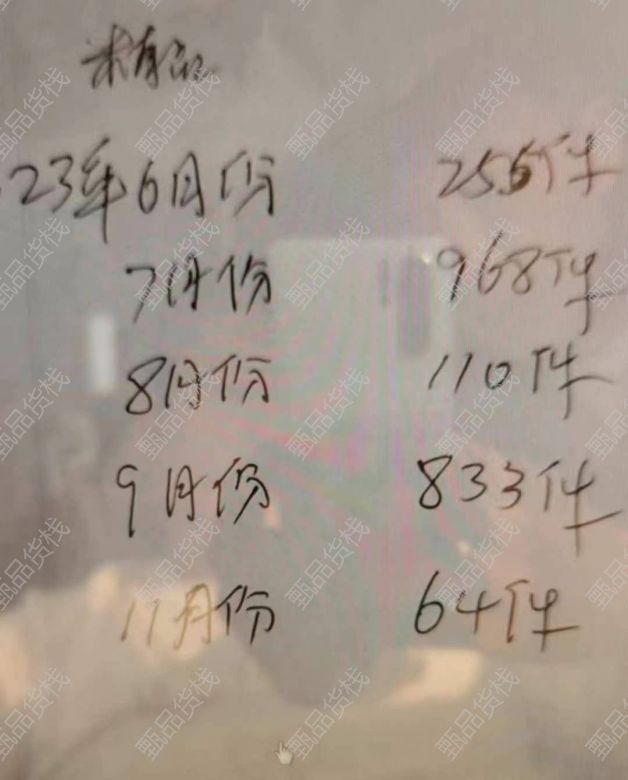 23年6月份 256件
7月份 968件
8月份 110件
9月份 833件
11月份 64件
甄品货栈